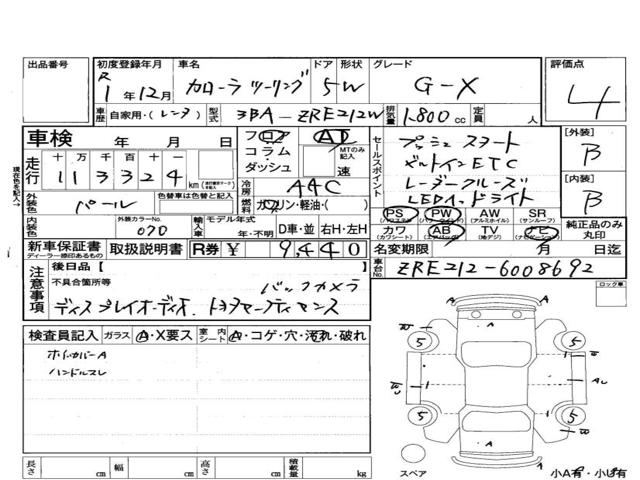 出品番号 初度登録年月 車名 ドア 形状 グレード 評価点
R 1年12月 カローラツーリング 5 W G-X 4
車歴 自家用・(レンタ) 型式 3BA-ZRE212W 排気量 1.800 cc 定員 人
車検 年 月 日 フロア AT セールスポイント プッシュスタート [外装] B
現在色を記入→
走行 十 万 千 百 十 一 コラム・ダッシュ MTのみ記入 速 ビルトインETC
113324 km 冷房 AAC レーダークルーズ [内装] B
外装色 パール 色替車は色替と記入 燃料 ガソリン・軽油・( ) LEDヘッドライト
内装色 外装カラーNo. 070 輸入車 モデル年式 年・不明 D車・並 右H・左H
PS (パワステ) PW (パワーウインド) AW (アルミホイル) SR (サンルーフ) 純正品のみ丸印
カワ (カワシート) AB (エアバッグ) TV (地デジ) ナビ
新車保証書 ディーラー捺印あるもの 取扱説明書 R券 ¥ 9,440 名変期限 月 日迄
注意事項 後日品 [ ] 車台No. ZRE212-6008692
不具合箇所等 バックカメラ ロック車
ディスプレイオーディオ. トヨタセーフティセンス
検査員記入 ガラス A・X要ス 室内シート A・コゲ・穴・汚れ・破れ
ホイルカバーA
ハンドルスレ
A
W 5 5
W 1 1 A AU
5 5
W
A
スペア
長さ cm 幅 cm 高さ cm 積載量 kg 小A有・小U有